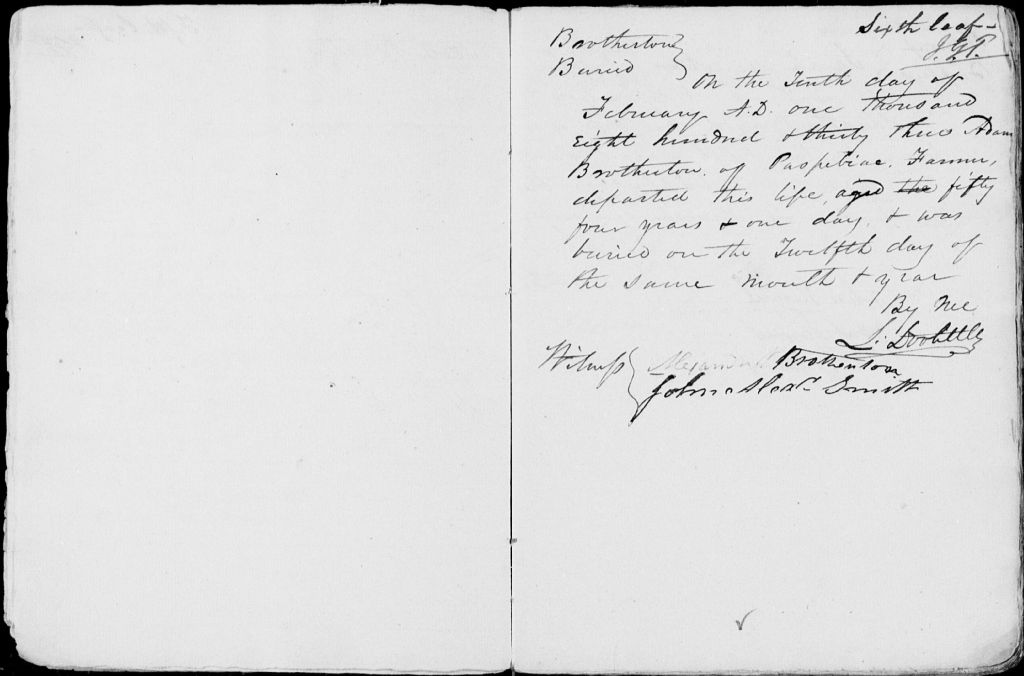 Sixth leaf -
J.G.T.
Brotherton
Buried
On the Tenth day of
February A.D. one thousand
Eight hundred & thirty three Adam
Brotherton. of Paspebiac. Farmer,
departed this life, aged the fifty
four years & one day, & was
buried on the Twelfth day of
the same month & year
By me
L. Doolittle
Witness Alexander Brotherton
John Alexr Smith